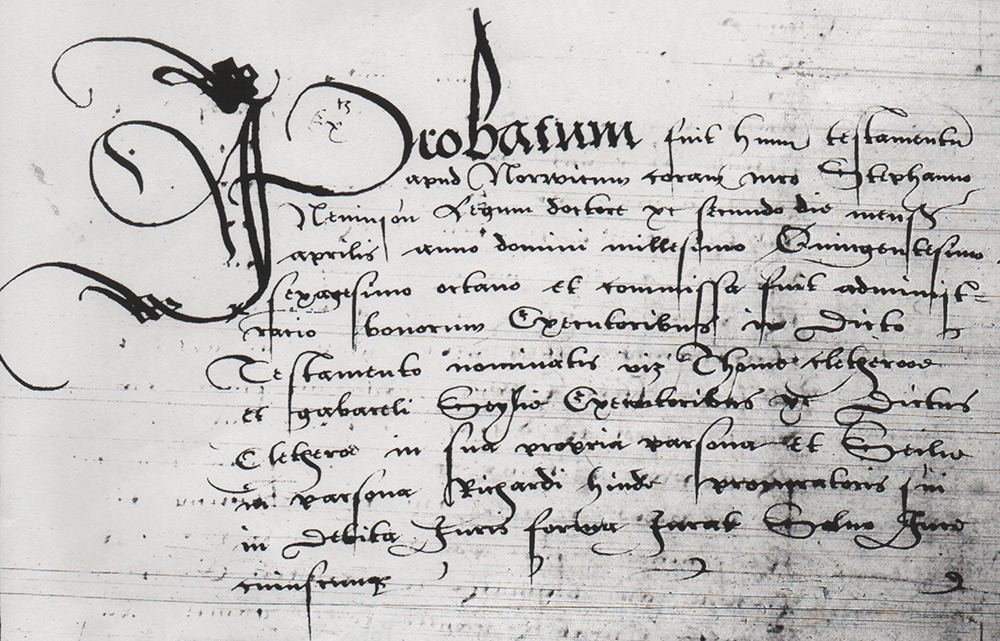 Probatum fuit hmoi testamentū
apud Norwicum coram mro Stephanno
Nevinson Legum doctore xx secundo die mensis
aprilis anno domini millesimo Quingentesimo
sexagesimo octavo et commissa fuit administ-
racio bonorum Executoribus in Dicto
Testamento nominatis viz Thome Cletheroe
et gabareli Seylie Executoribus
Cletheroe in sua propria parsona et Seilie
in parsona Richardi hinde procuratoris sui
in debita Juris forma Jurat Salvo Jure
cuiuscunq